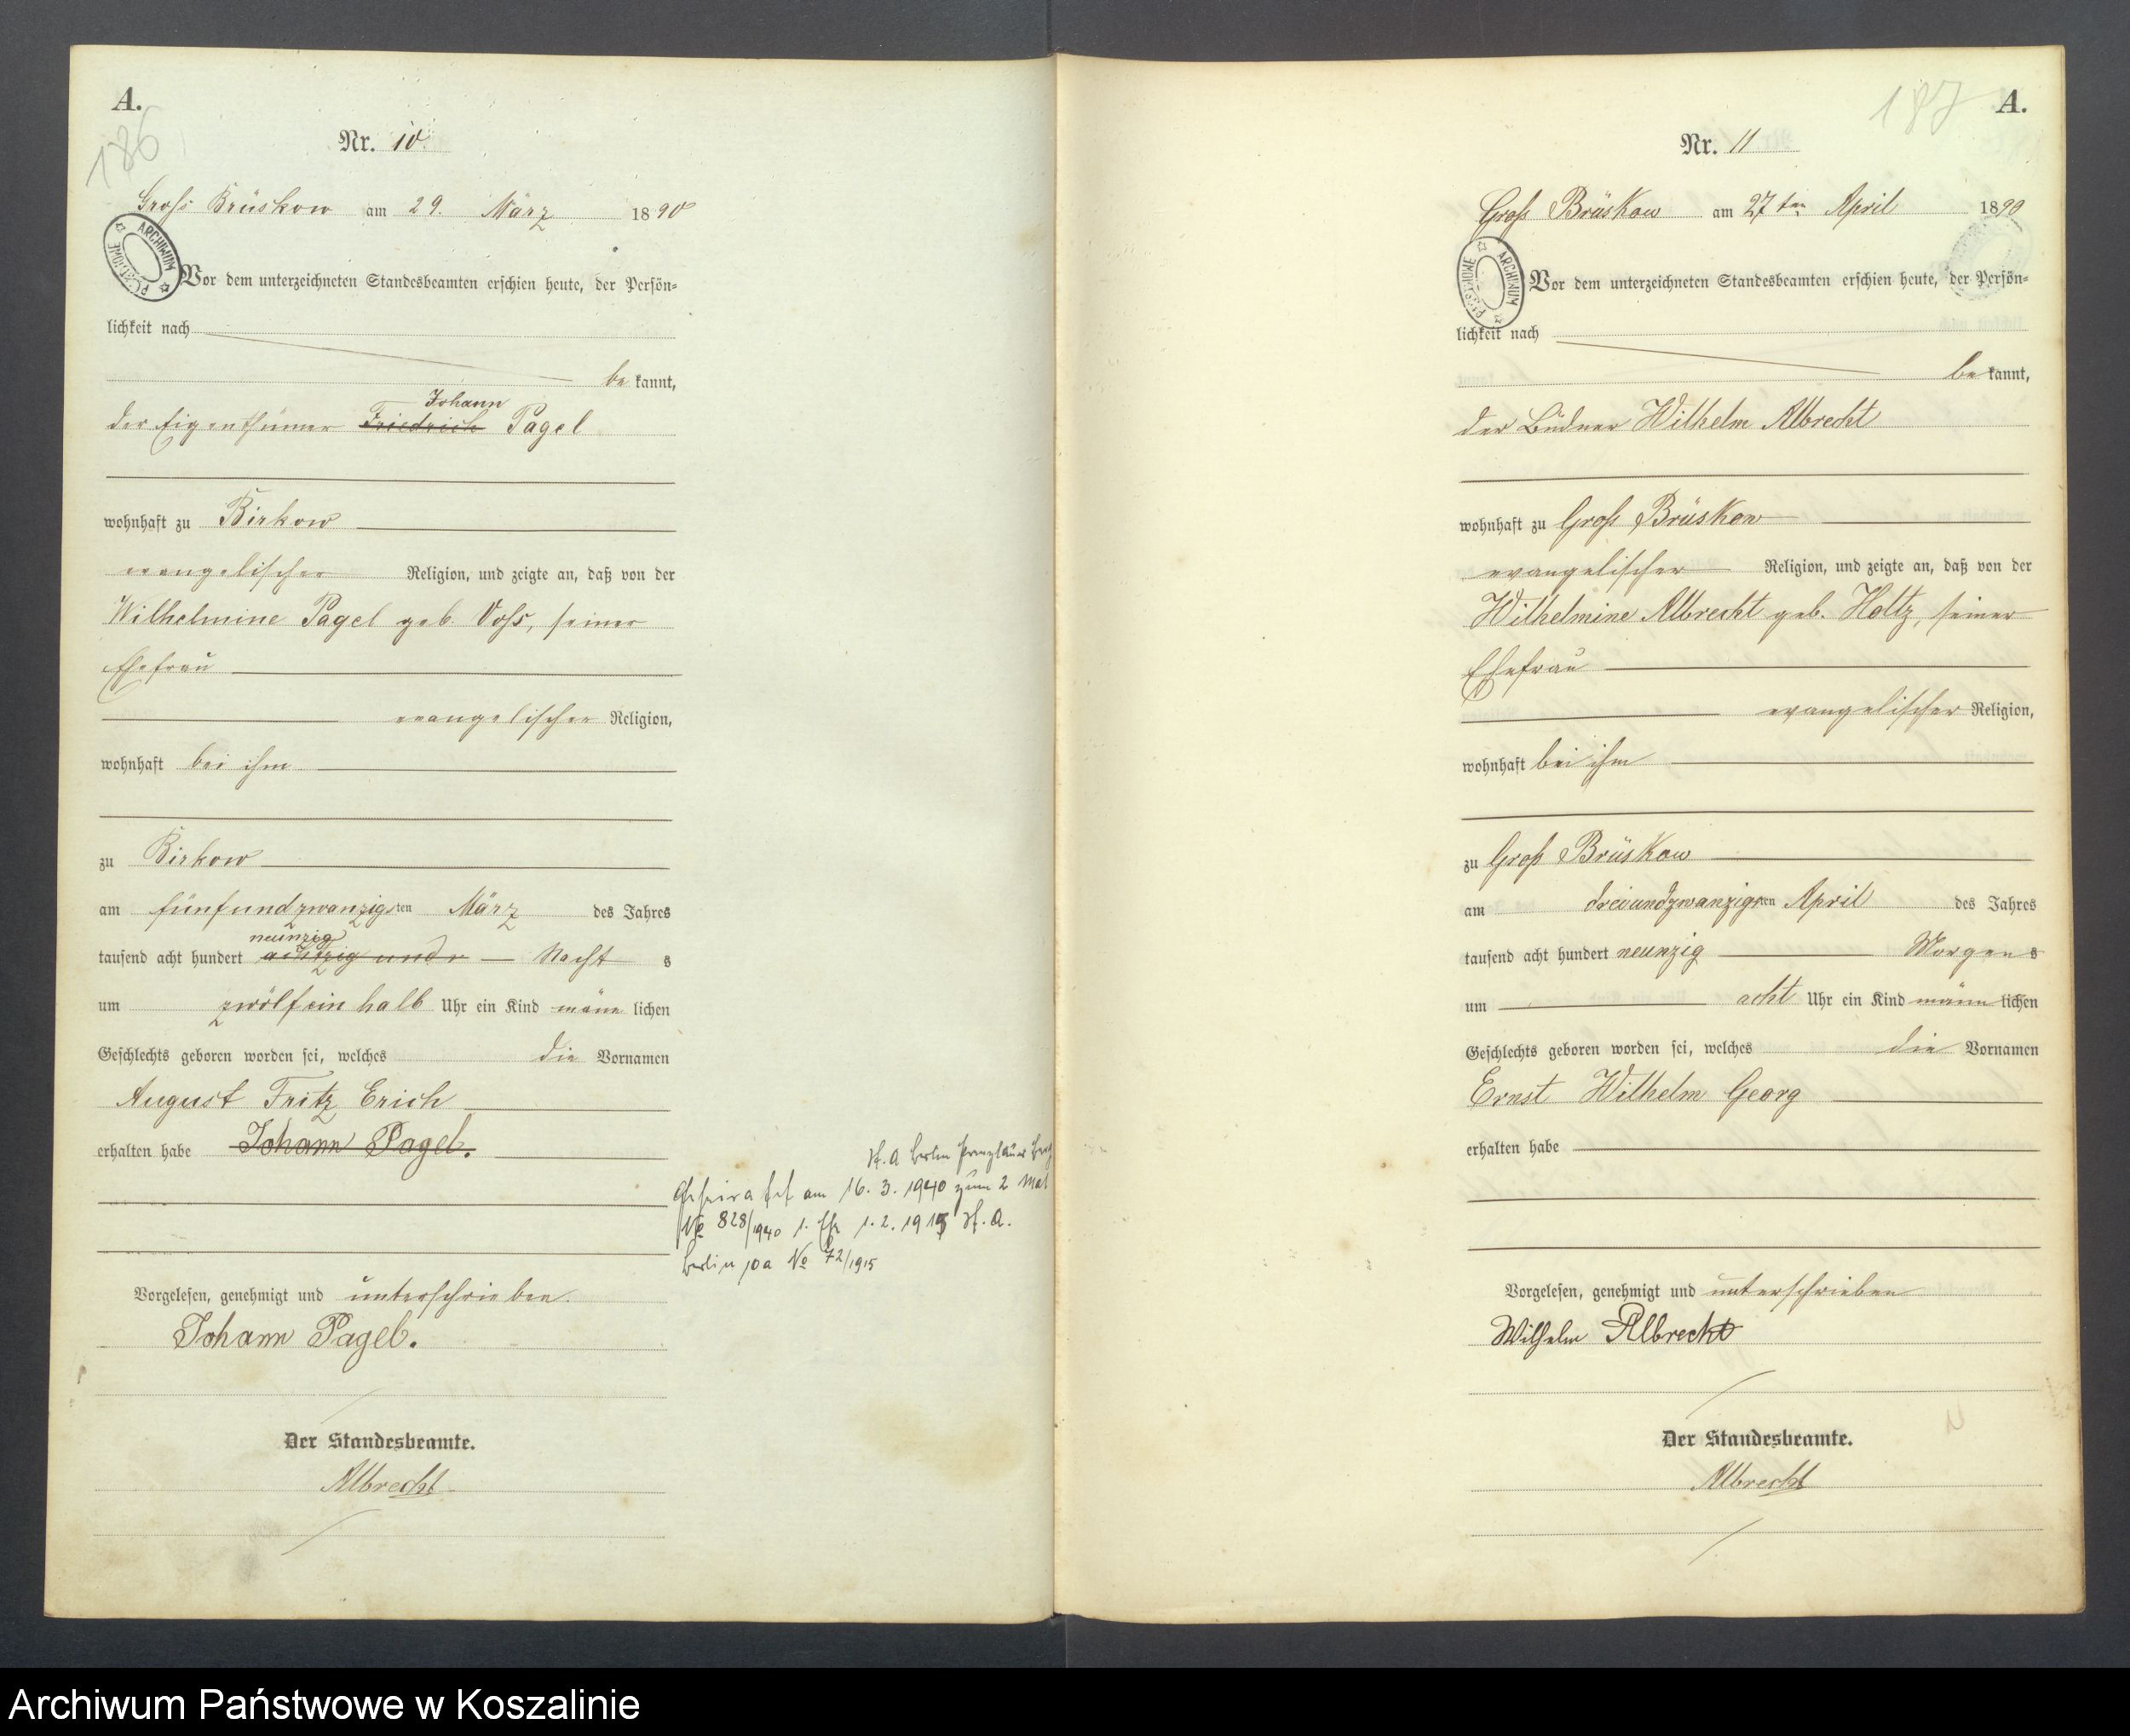 A.
186
Nr. 10.
Gross Brüskow am 29. März 1890
ARCHIWUM PAŃSTWOWE
Vor dem unterzeichneten Standesbeamten erschien heute, der Persön=
lichkeit nach
be kannt,
Johann
der Eigenthümer Friedrich Pagel
wohnhaft zu Birkow
evangelischer Religion, und zeigte an, daß von der
Wilhelmine Pagel geb. Voss, seiner
Ehefrau
evangelischer Religion,
wohnhaft bei ihm
zu Birkow
am fünfundzwanzigsten März des Jahres
neunzig
tausend acht hundert achtzig und Nacht s
um zwölfeinhalb Uhr ein Kind männ lichen
Geschlechts geboren worden sei, welches die Vornamen
August Fritz Erich
erhalten habe Johann Pagel.
St. A Berlin Prenzlauer Berg
Geheiratet am 16. 3. 1940 zum 2 Mal
№ 828/1940 1. Ehe 1. 2. 1915 St. A.
Berlin 10a № 72/1915
Vorgelesen, genehmigt und unterschrieben.
Johann Pagel.
Der Standesbeamte.
Albrecht
187
A.
Nr. 11
Groß Brüskow am 27ten April 1890
ARCHIWUM PAŃSTWOWE
Vor dem unterzeichneten Standesbeamten erschien heute, der Persön=
lichkeit nach
be kannt,
der Büdner Wilhelm Albrecht
wohnhaft zu Groß Brüskow
evangelischer Religion, und zeigte an, daß von der
Wilhelmine Albrecht geb. Holtz, seiner
Ehefrau
evangelischer Religion,
wohnhaft bei ihm
zu Groß Brüskow
am dreiundzwanzigsten April des Jahres
tausend acht hundert neunzig Morgen s
um acht Uhr ein Kind männ lichen
Geschlechts geboren worden sei, welches die Vornamen
Ernst Wilhelm Georg
erhalten habe
Vorgelesen, genehmigt und unterschrieben
Wilhelm Albrecht
Der Standesbeamte.
Albrecht
Archiwum Państwowe w Koszalinie